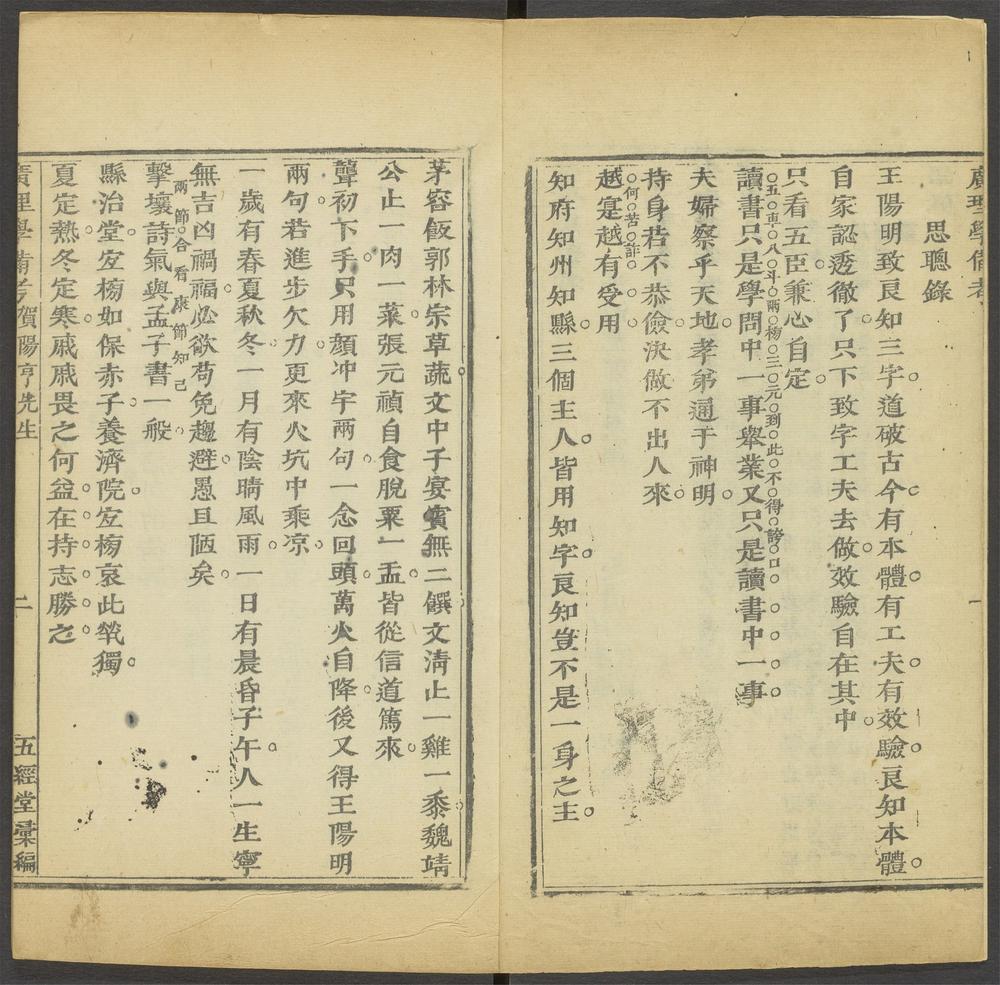 廣理學備考
思聰錄
王陽明致良知三字道破古今有本體有工夫有效驗良知本體
自家認透徹了只下致字工夫去做效驗自在其中
只看五臣兼心自定
五車八斗兩榜三元到此不得誇口
讀書只是學問中一事舉業又只是讀書中一事
夫婦察乎天地孝弟通于神明
持身若不恭儉決做不出人來
何苦詐
越寔越有受用
知府知州知縣三個主人皆用知字良知豈不是一身之主
一
茅容飯郭林宗草蔬文中子宴賓無二饌文淸止一雞一黍魏靖
公止一肉一菜張元禎自食脫粟一盂皆從信道篤來
聲初下手只用顏冲宇兩句一念回頭萬火自降後又得王陽明
兩句若進步欠力更來火坑中乘凉
一歲有春夏秋冬一月有陰晴風雨一日有晨昏子午人一生寧
無吉凶禍福必欲苟免趨避愚且陋矣
兩節合看康節知己
擊壤詩氣與孟子書一般
縣治堂宜榜如保赤子養濟院宜榜哀此煢獨
夏定熱冬定寒戚戚畏之何益在持志勝之
廣理學備考賀陽亨先生 二 五經堂彙編